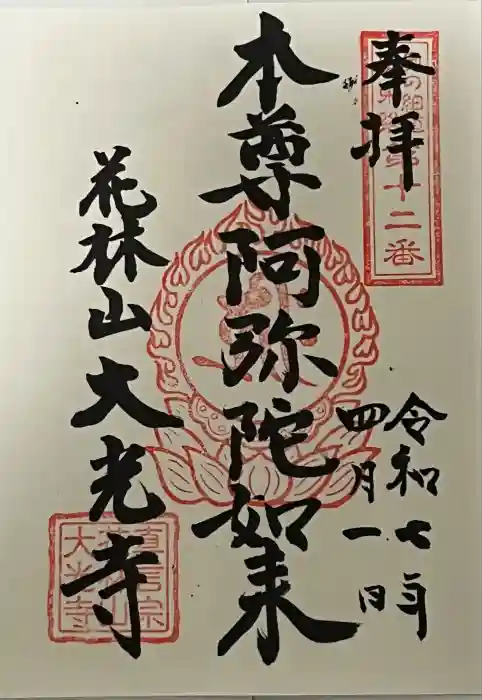 奉拝
の細道
第十二番
令和七年
四月一日
本尊阿弥陀如来
花林山大光寺
真言宗
花林山
大光寺